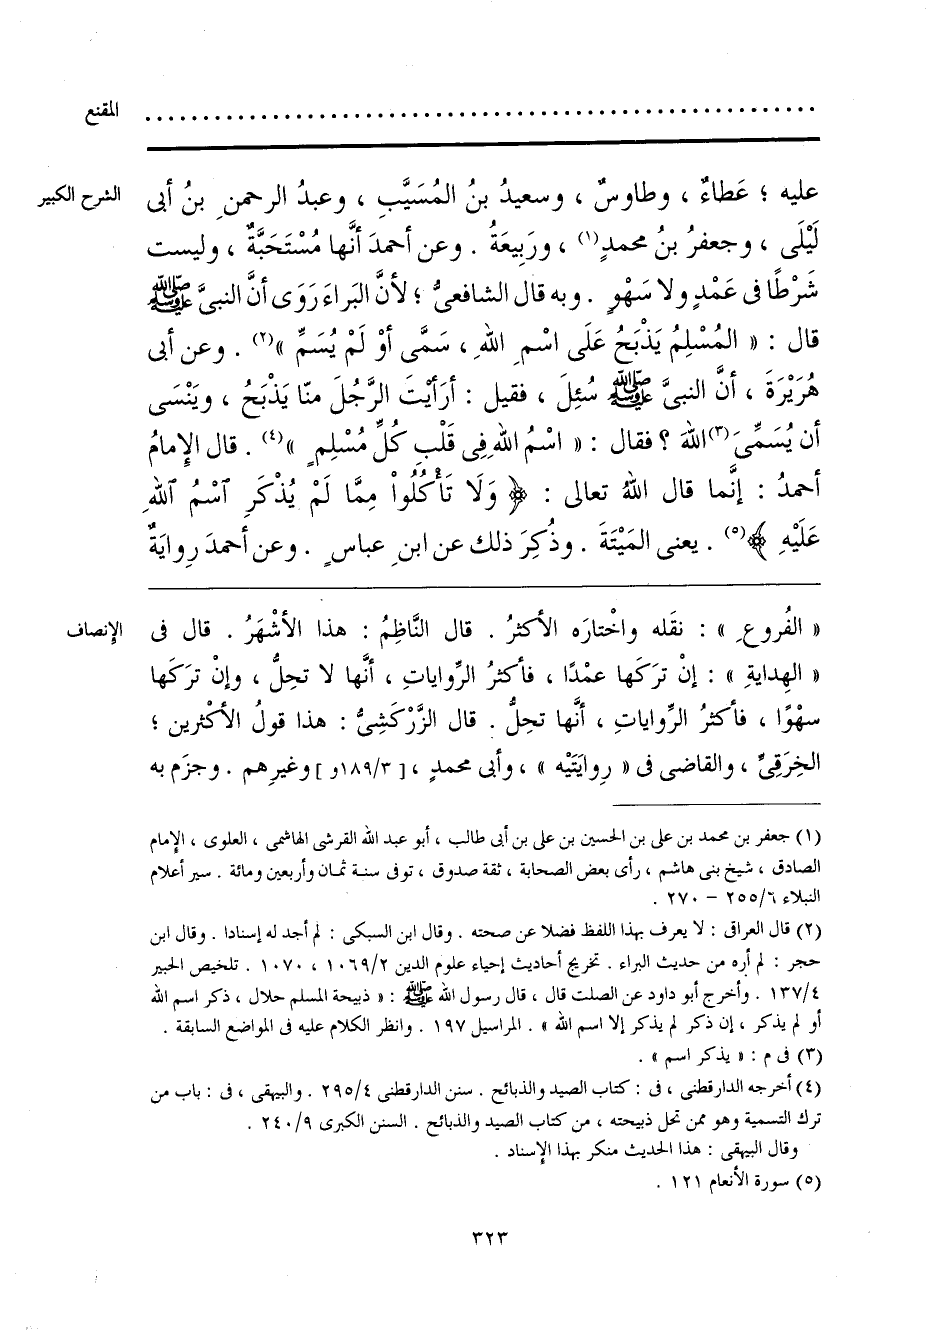 المقنع ........................................................
الشرح الكبير
عليه ؛ عَطاءٌ ، وطاوسٌ ، وسعيدُ بنُ المُسَيَّبِ ، وعبدُ الرحمنِ بنُ أبى
لَيْلَى ، وجعفرُ بنُ محمدٍ(١) ، ورَبِيعَةُ . وعن أحمدَ أنَّها مُسْتَحَبَّةٌ ، وليست
شَرْطًا فى عَمْدٍ ولا سَهْوٍ . وبه قال الشافعىُّ ؛ لأنَّ البَراءَ رَوَى أنَّ النبىَّ ﷺ
قال : « المُسْلِمُ يَذْبَحُ عَلَى اسْمِ اللهِ ، سَمَّى أوْ لَمْ يُسَمِّ »(٢) . وعن أبى
هُرَيْرَةَ ، أنَّ النبىَّ ﷺ سُئِلَ ، فقيل : أرَأيْتَ الرَّجُلَ منّا يَذْبَحُ ، ويَنْسَى
أن يُسَمِّىَ(٣) اللهَ ؟ فقال : « اسْمُ اللهِ فِى قَلْبِ كُلِّ مُسْلِمٍ »(٤) . قال الإِمامُ
أحمدُ : إنَّما قال اللهُ تعالى : ﴿ وَلَا تَأْكُلُواْ مِمَّا لَمْ يُذْكَرِ ٱسْمُ ٱللهِ
عَلَيْهِ ﴾(٥) . يعنى المَيْتَةَ . وذُكِرَ ذلك عن ابنِ عباسٍ . وعن أحمدَ رِوايَةٌ
الإِنصاف
« الفُروعِ » : نقَله واخْتارَه الأكثرُ . قال النَّاظِمُ : هذا الأشْهَرُ . قال فى
« الهِدايةِ » : إنْ تركَها عمْدًا ، فأكثرُ الرِّواياتِ ، أنَّها لا تحِلُّ ، وإنْ تركَها
سهْوًا ، فأكثرُ الرِّواياتِ ، أنَّها تحِلُّ . قال الزَّرْكَشِىُّ : هذا قولُ الأكْثرين ؛
الخِرَقِىِّ ، والقاضى فى « رِوايَتَيْه » ، وأبى محمدٍ ، [ ١٨٩/٣و ] وغيرِهم . وجزَم به
(١) جعفر بن محمد بن على بن الحسين بن على بن أبى طالب ، أبو عبد الله القرشى الهاشمى ، العلوى ، الإمام
الصادق ، شيخ بنى هاشم ، رأى بعض الصحابة ، ثقة صدوق ، توفى سنة ثمان وأربعين ومائة . سير أعلام
النبلاء ٢٥٥/٦ – ٢٧٠ .
(٢) قال العراقى : لا يعرف بهذا اللفظ فضلا عن صحته . وقال ابن السبكى : لم أجد له إسنادا . وقال ابن
حجر : لم أره من حديث البراء . تخريج أحاديث إحياء علوم الدين ١٠٦٩/٢ ، ١٠٧٠ . تلخيص الحبير
١٣٧/٤ . وأخرج أبو داود عن الصلت قال ، قال رسول الله ﷺ : « ذبيحة المسلم حلال ، ذكر اسم الله
أو لم يذكر ، إن ذكر لم يذكر إلا اسم الله » . المراسيل ١٩٧ . وانظر الكلام عليه فى المواضع السابقة .
(٣) فى م : « يذكر اسم » .
(٤) أخرجه الدارقطنى ، فى : كتاب الصيد والذبائح . سنن الدارقطنى ٢٩٥/٤ . والبيهقى ، فى : باب من
ترك التسمية وهو ممن تحل ذبيحته ، من كتاب الصيد والذبائح . السنن الكبرى ٢٤٠/٩ .
وقال البيهقى : هذا الحديث منكر بهذا الإِسناد .
(٥) سورة الأنعام ١٢١ .
٣٢٣